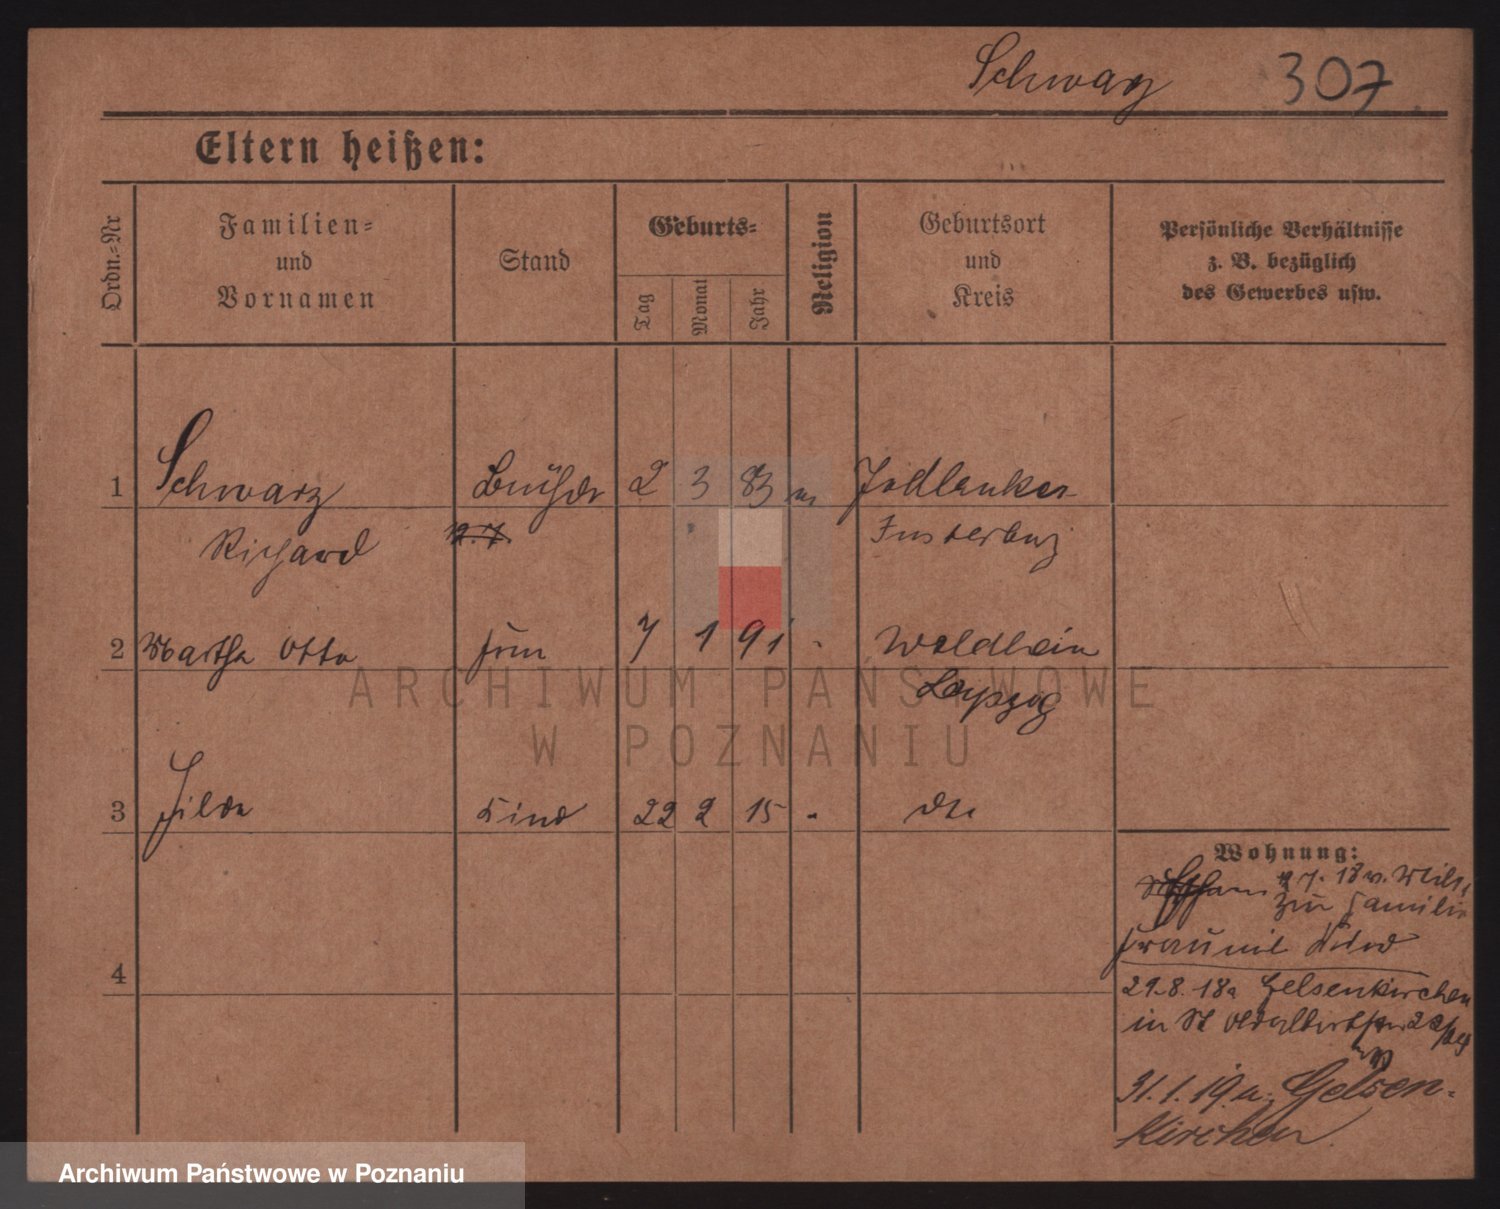 Schwarz 307
Eltern heißen:
Ordn.-Nr
Familien-
und
Vornamen
Stand
Geburts-
Tag
Monat
Jahr
Religion
Geburtsort
und
Kreis
Persönliche Verhältnisse
z. B. bezüglich
des Gewerbes usw.
1 Schwarz 2 3 83 Jodlauken
Richard Insterburg
2 Martha Otto Frau 7 1 91 Waldheim
Leipzig
3 Hilda Kind 22 2 15 - dto
4
Wohnung:
7. 18 v.
zur Familie
Frau mit Kind
29.8.18 a Gelsenkirchen
in St
31.1.19. a. Gelsen-
kirchen.
ARCHIWUM PAŃSTWOWE
W POZNANIU
Archiwum Państwowe w Poznaniu